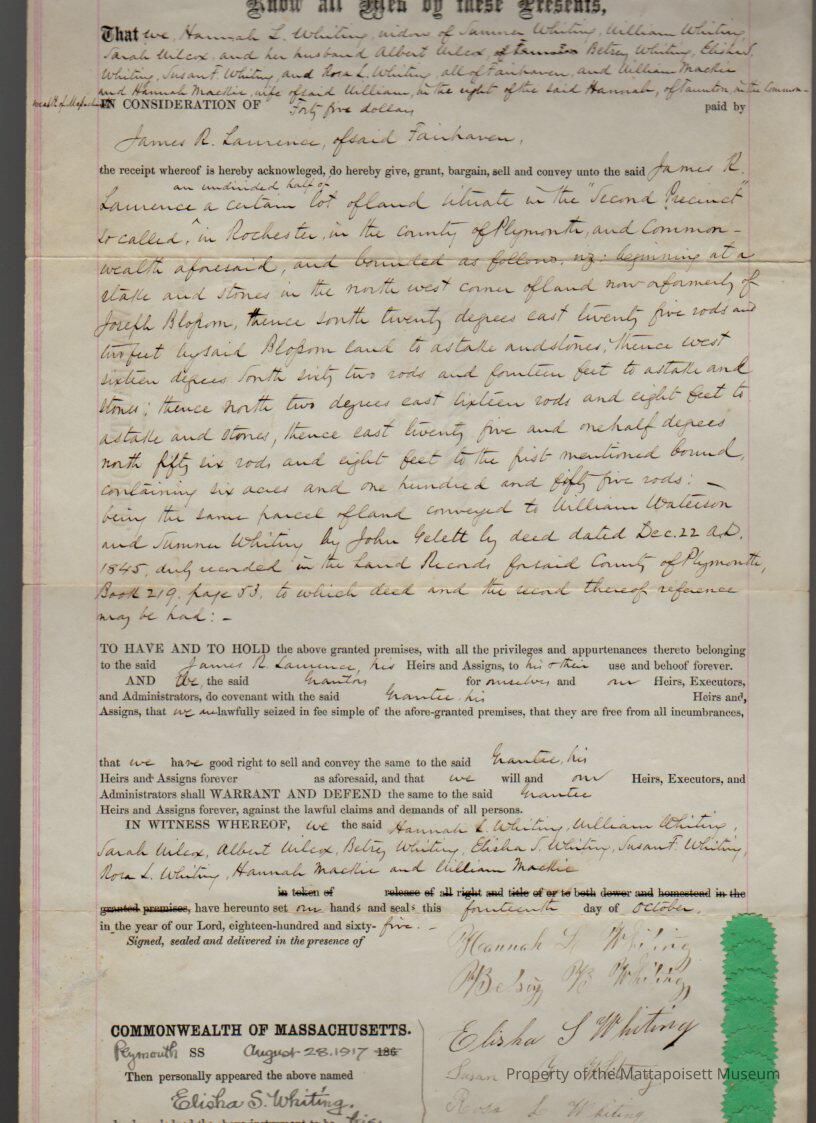 Know all Men by these Presents,
That we, Hannah L. Whiting, widow of Sumner Whiting, William Whiting,
Sarah Wilcox, and her husband Albert Wilcox, Betsey Whiting, Elisha S.
Whiting, Susan F. Whiting, and Rosa L. Whiting, all of Fairhaven, and William Mackie
and Hannah Mackie, wife of said William, in the right of the said Hannah, of Taunton, in the Common-
wealth of Massachusetts
IN CONSIDERATION OF Forty five dollars paid by
James R. Lawrence, of said Fairhaven,
the receipt whereof is hereby acknowleged, do hereby give, grant, bargain, sell and convey unto the said James R.
an undivided half of
Lawrence a certain lot of land situate in the "Second Precinct"
so called, in Rochester, in the county of Plymouth, and Common-
wealth aforesaid, and bounded as follows, viz: beginning at a
stake and stones in the north west corner of land now or formerly of
Joseph Blossom, thence south twenty degrees east twenty five rods and
two feet by said Blossom land to a stake and stones; thence west
sixteen degrees South sixty two rods and fourteen feet to a stake and
stones; thence north two degrees east sixteen rods and eight feet to
a stake and stones, thence east twenty five and one half degrees
north fifty six rods and eight feet to the first mentioned bound,
containing six acres and one hundred and fifty five rods: —
being the same parcel of land conveyed to William Waterson
and Sumner Whiting by John Gelett by deed dated Dec. 22 A.D.
1845, duly recorded in the Land Records for said County of Plymouth,
Book 219, page 53, to which deed and the record thereof reference
may be had: —
TO HAVE AND TO HOLD the above granted premises, with all the privileges and appurtenances thereto belonging
to the said James R. Lawrence, his Heirs and Assigns, to his & their use and behoof forever.
AND We, the said Grantors for ourselves and our Heirs, Executors,
and Administrators, do covenant with the said Grantee, his Heirs and,
Assigns, that we are lawfully seized in fee simple of the afore-granted premises, that they are free from all incumbrances,
that we have good right to sell and convey the same to the said Grantee, his
Heirs and Assigns forever as aforesaid, and that we will and our Heirs, Executors, and
Administrators shall WARRANT AND DEFEND the same to the said Grantee
Heirs and Assigns forever, against the lawful claims and demands of all persons.
IN WITNESS WHEREOF, we the said Hannah L. Whiting, William Whiting,
Sarah Wilcox, Albert Wilcox, Betsey Whiting, Elisha S. Whiting, Susan F. Whiting,
Rosa L. Whiting, Hannah Mackie and William Mackie
in token of release of all right and title of or to both dower and homestead in the
granted premises, have hereunto set our hands and seals this fourteenth day of October,
in the year of our Lord, eighteen-hundred and sixty-five. —
Signed, sealed and delivered in the presence of
Hannah L Whiting
Betsey B Whiting
COMMONWEALTH OF MASSACHUSETTS.
Elisha S Whiting
Plymouth SS August 28, 1917 186
Then personally appeared the above named
Susan F Whiting
Elisha S. Whiting,
Rosa L Whiting
Property of the Mattapoisett Museum